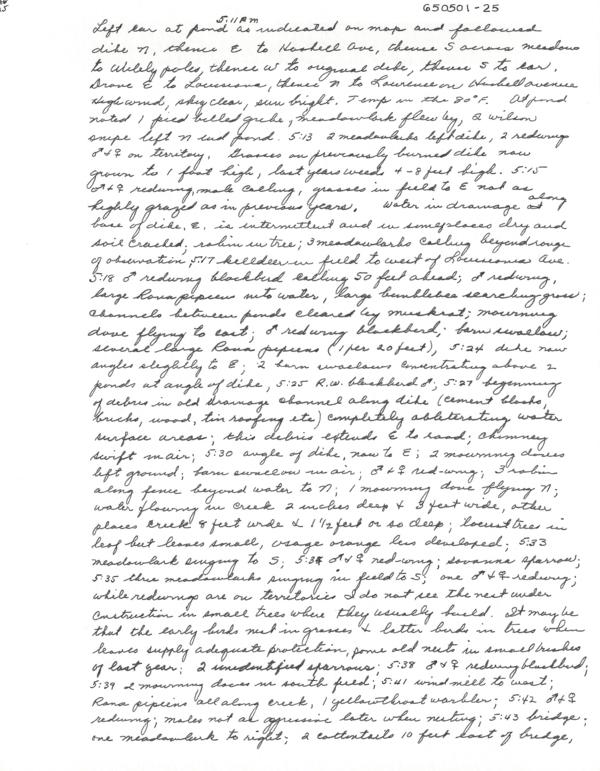 650501-25
5:11 PM
Left car at pond as indicated on map and followed
dike N, thence E to Haskell Ave, thence S across meadow
to Utility poles, thence W to original dike, thence S to car.
Drove E to Louisiana, thence N to Lawrence on Haskell avenue
High wind, sky clear, sun bright. Temp in the 80°F. At pond
noted 1 pied billed grebe, meadowlark flew by, 2 wilson
snipe left N end pond. 5:13 2 meadowlarks left dike, 2 redwing
♂ + ♀ on territory. Grasses on previously burned dike now
grown to 1 foot high, last years weeds 4-8 feet high. 5:15
♂ + ♀ redwing, male calling, grasses in field to E not as
highly grazed as in previous years. Water in drainage along
base of dike, E. is intermittent and in some places dry and
soil cracked; robin in tree; 3 meadowlarks calling beyond range
of observation; 5:17 killdeer in field to west of Louisiana Ave.
5:18 ♂ redwing blackbird calling 50 feet ahead; ♂ redwing,
large Rana pipiens into water, large bumblebee searching grass;
channels between ponds cleared by muskrat; mourning
dove flying to east; ♂ redwing blackbird; barn swallow;
several large Rana pipiens (1 per 20 feet), 5:24 dike now
angles slightly to E; 2 barn swallows concentrating above 2
ponds at angle of dike, 5:25 R.W. blackbird ♂; 5:27 beginning
of debris in old drainage channel along dike (cement blocks,
bricks, wood, tin roofing etc) completely obliterating water
surface areas; this debris extends E to road; chimney
swift in air; 5:30 angle of dike, now to E; 2 mourning doves
left ground; barn swallow in air; ♂ + ♀ red-wing; 3 robin
along fence beyond water to N; 1 mourning dove flying N;
water flowing in creek 2 inches deep + 3 feet wide, other
places creek 8 feet wide + 1 1/2 feet or so deep; locust trees in
leaf but leaves small, osage orange less developed; 5:33
meadowlark singing to S; 5:34 ♂ + ♀ red-wing; savanna sparrow;
5:35 three meadowlarks singing in field to S; one ♂ + ♀ redwing;
while redwings are on territories I do not see the nest under
construction in small trees where they usually build. It may be
that the early birds nest in grasses + latter birds in trees when
leaves supply adequate protection, some old nests in small bushes
of last year; 2 unidentified sparrows; 5:38 ♂ + ♀ redwing blackbird;
5:39 2 mourning doves in south field; 5:41 wind mill to west;
Rana pipiens all along creek, 1 yellowthroat warbler; 5:42 ♂ + ♀
redwing; males not as aggressive later when nesting; 5:43 bridge;
one meadowlark to right; 2 cottontails 10 feet east of bridge,